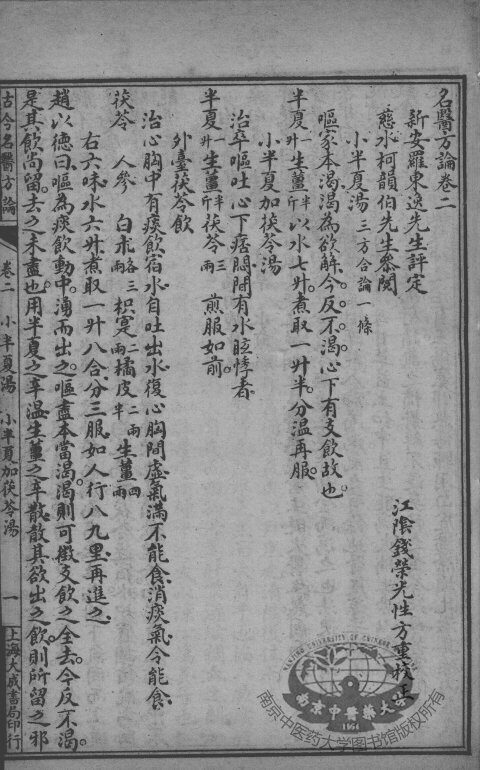 名醫方論卷二
新安羅東逸先生評定
慈水柯韻伯先生參閱
江陰錢榮光性方重校正
小半夏湯三方合論一條
嘔家本渴渴為欲解今反不渴心下有支飲故也
半夏一升生薑半斤以水七升煮取一升半分溫再服
小半夏加茯苓湯
治卒嘔吐心下痞悶膈間有水眩悸者
半夏一升生薑半斤茯苓三兩煎服如前
外臺茯苓飲
治心胸中有痰飲宿水自吐出水復心胸間虛氣滿不能食消痰氣令能食
茯苓 人參 白朮各三兩枳實二兩橘皮二兩半生薑四兩
右六味水六升煮取一升八合分三服如人行八九里再進之
趙以德曰嘔為痰飲動中湧而出之嘔盡本當渴渴則可徵支飲之全去今反不渴
是其飲尚留去之未盡也用半夏之辛溫生薑之辛散散其欲出之飲則所留之邪
古今名醫方論
卷二 小半夏湯 小半夏加茯苓湯
一
上海大成書局印行
南京中醫藥大學
1954
南京中医药大学图书馆版权所有